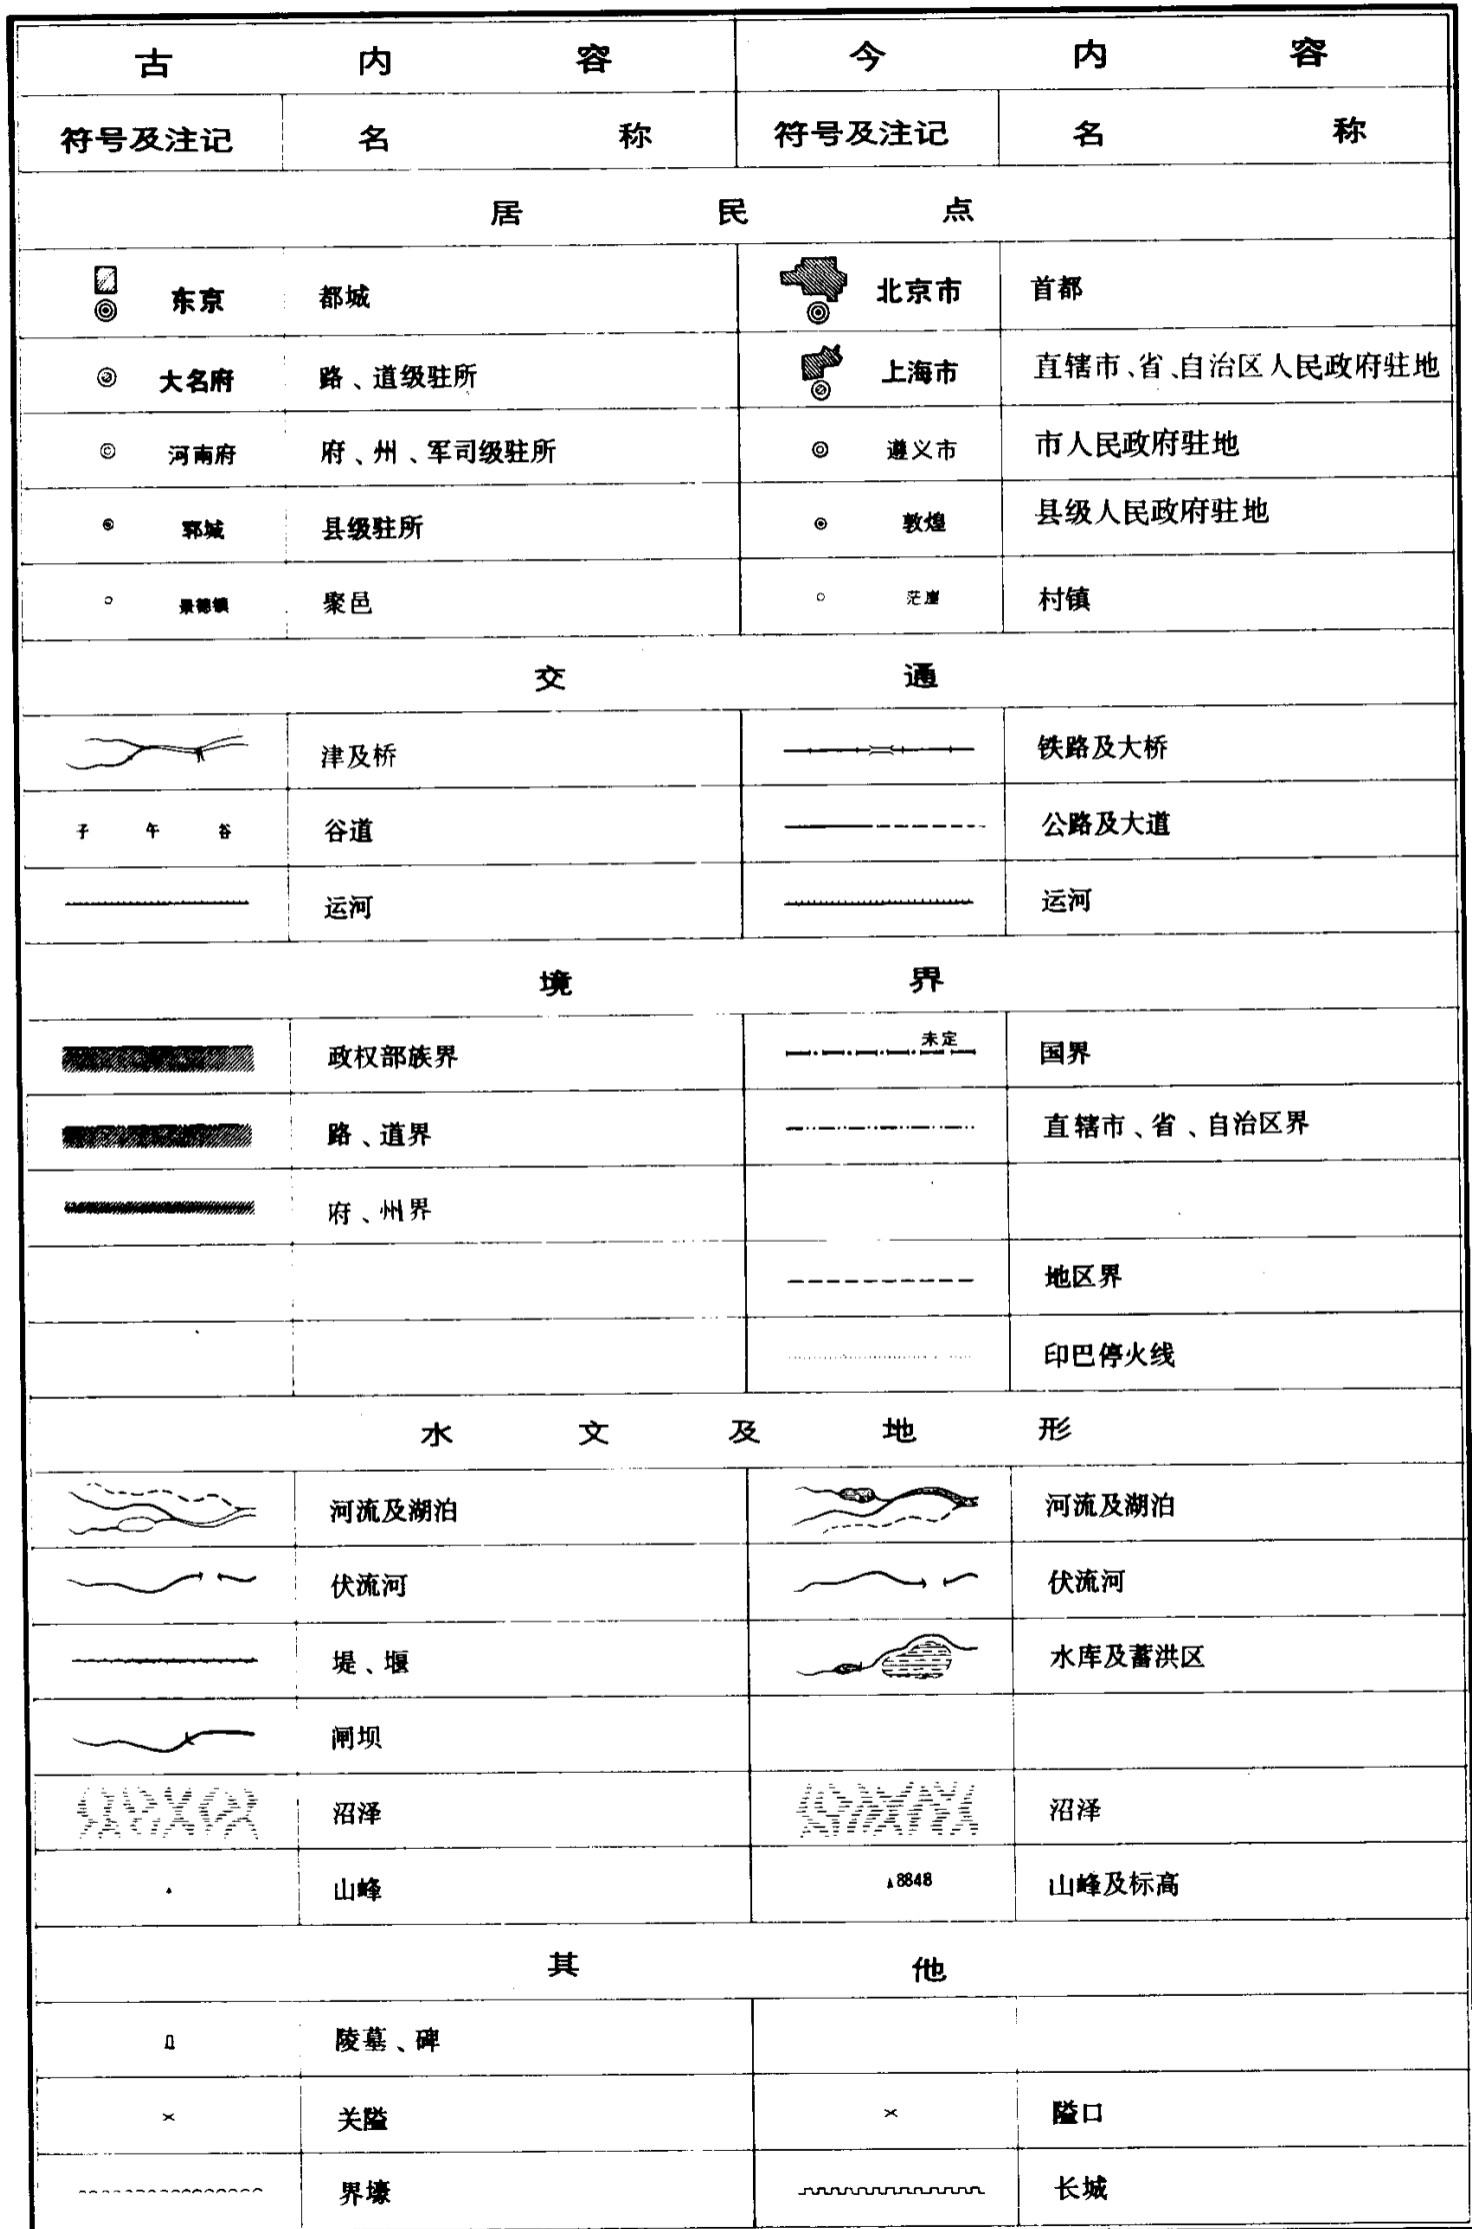 古内容 今内容
符号及注记 名称 符号及注记 名称
居民点
东京 都城 北京市 首都
大名府 路、道级驻所 上海市 直辖市、省、自治区人民政府驻地
河南府 府、州、军司级驻所 遵义市 市人民政府驻地
郓城 县级驻所 敦煌 县级人民政府驻地
景德镇 聚邑 茫崖 村镇
交通
津及桥 铁路及大桥
子午谷 谷道 公路及大道
运河 运河
境界
政权部族界 未定 国界
路、道界 直辖市、省、自治区界
府、州界
地区界
印巴停火线
水文及地形
河流及湖泊 河流及湖泊
伏流河 伏流河
堤、堰 水库及蓄洪区
闸坝
沼泽 沼泽
山峰 8848 山峰及标高
其他
陵墓、碑
关隘 隘口
界壕 长城